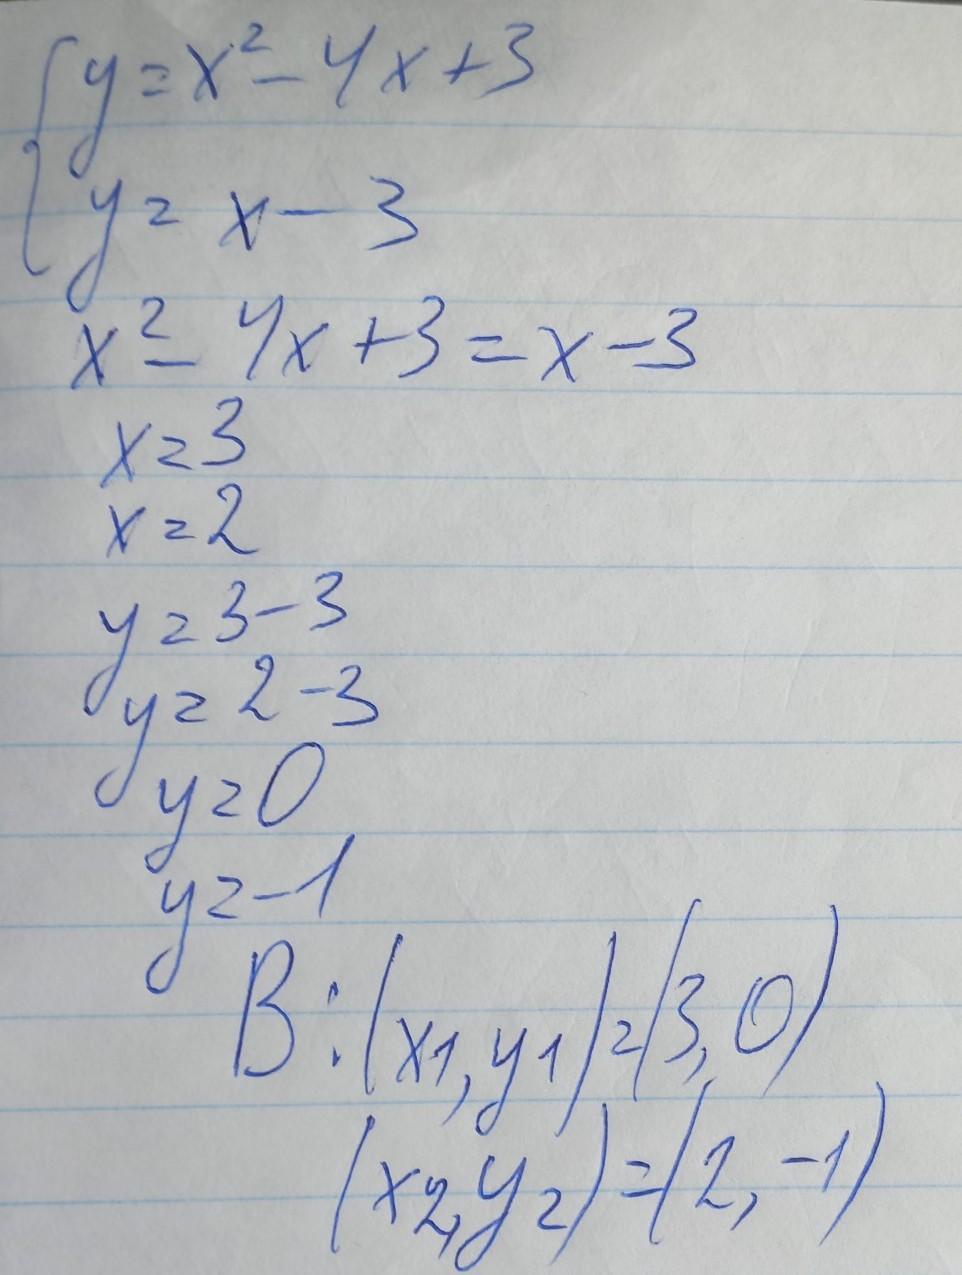 {y=x²-4x+3
y=x-3
x²-4x+3=x-3
x=3
x=2
y=3-3
y=2-3
y=0
y=-1
B:(x1,y1)=(3,0)
(x2,y2)=(2,-1)